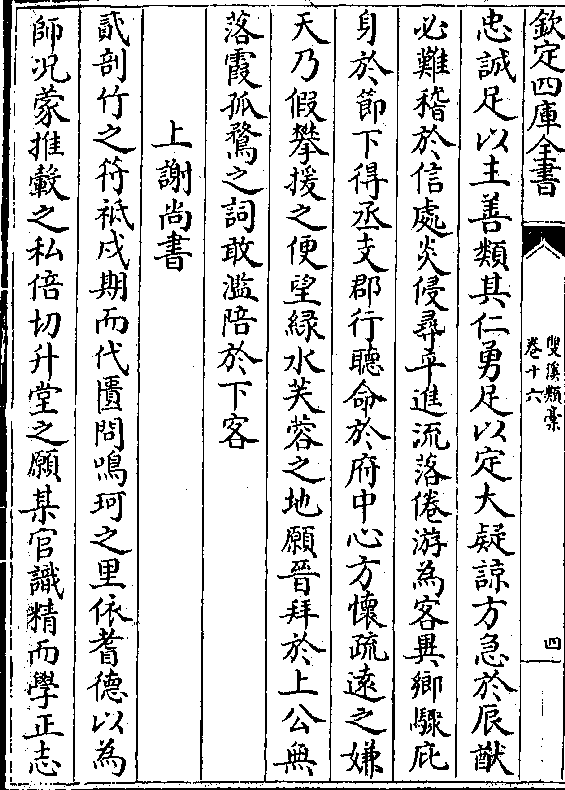 欽定四庫全書
雙溪類稾
卷十六
四
忠誠足以主善類其仁勇足以定大疑諒方急於辰猷
必難稽於信處炎侵尋平進流落倦游為客異鄉驟庇
身於節下得丞支郡行聽命於府中心方懷疏遠之嫌
天乃假攀援之便望緑水芙蓉之地願晉拜於上公無
落霞孤鶩之詞敢濫陪於下客
上謝尚書
貳剖竹之符祗戍期而代匱問鳴珂之里依耆德以為
師况蒙推轂之私倍切升堂之願某官識精而學正志